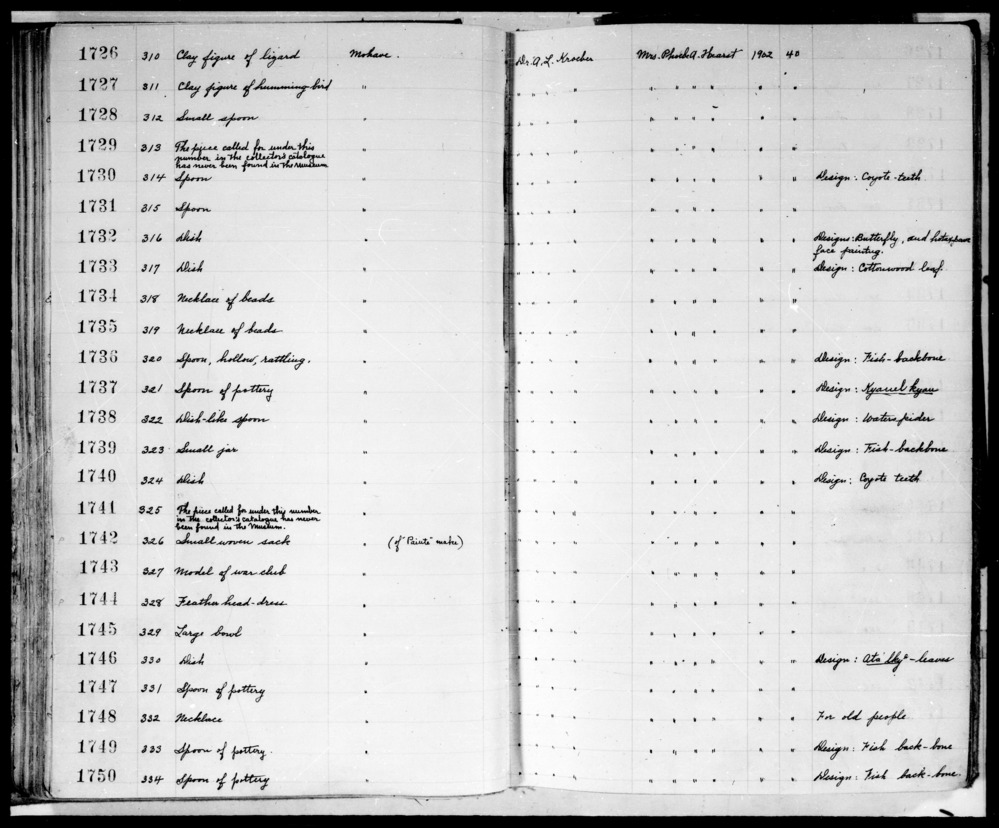 1726 310 Clay figure of lizard Mohave. Dr. A. L. Kroeber Mrs. Phoebe A. Hearst 1902 40
1727 311 Clay figure of humming-bird " " " " " " " " " " "
1728 312 Small spoon " " " " " " " " " " "
1729 313 The piece called for under this
number in the collector's catalogue
has never been found in the museum " " " " " " " " " " "
1730 314 Spoon " " " " " " " " " " " Design: Coyote-teeth
1731 315 Spoon " " " " " " " " " " "
1732 316 Dish " " " " " " " " " " " Designs: Butterfly, and
face painting.
1733 317 Dish " " " " " " " " " " " Design: Cottonwood leaf.
1734 318 Necklace of beads " " " " " " " " " " "
1735 319 Necklace of beads " " " " " " " " " " "
1736 320 Spoon, hollow, rattling. " " " " " " " " " " " Design: Fish-backbone
1737 321 Spoon of pottery " " " " " " " " " " " Design:
1738 322 Dish-like spoon " " " " " " " " " " " Design: Waterspider
1739 323 Small jar " " " " " " " " " " " Design: Fish-backbone
1740 324 Dish " " " " " " " " " " " Design: Coyote teeth
1741 325 The piece called for under this number
in the collector's catalogue has never
been found in the Museum. " " " " " " " " " " "
1742 326 Small woven sack " (of Paiute make) " " " " " " " " " "
1743 327 Model of war club " " " " " " " " " " "
1744 328 Feather head-dress " " " " " " " " " " "
1745 329 Large bowl " " " " " " " " " " "
1746 330 Dish " " " " " " " " " " " Design: -leaves
1747 331 Spoon of pottery " " " " " " " " " " "
1748 332 Necklace " " " " " " " " " " " For old people
1749 333 Spoon of pottery. " " " " " " " " " " " Design: Fish back-bone
1750 334 Spoon of pottery " " " " " " " " " " " Design: Fish back-bone.